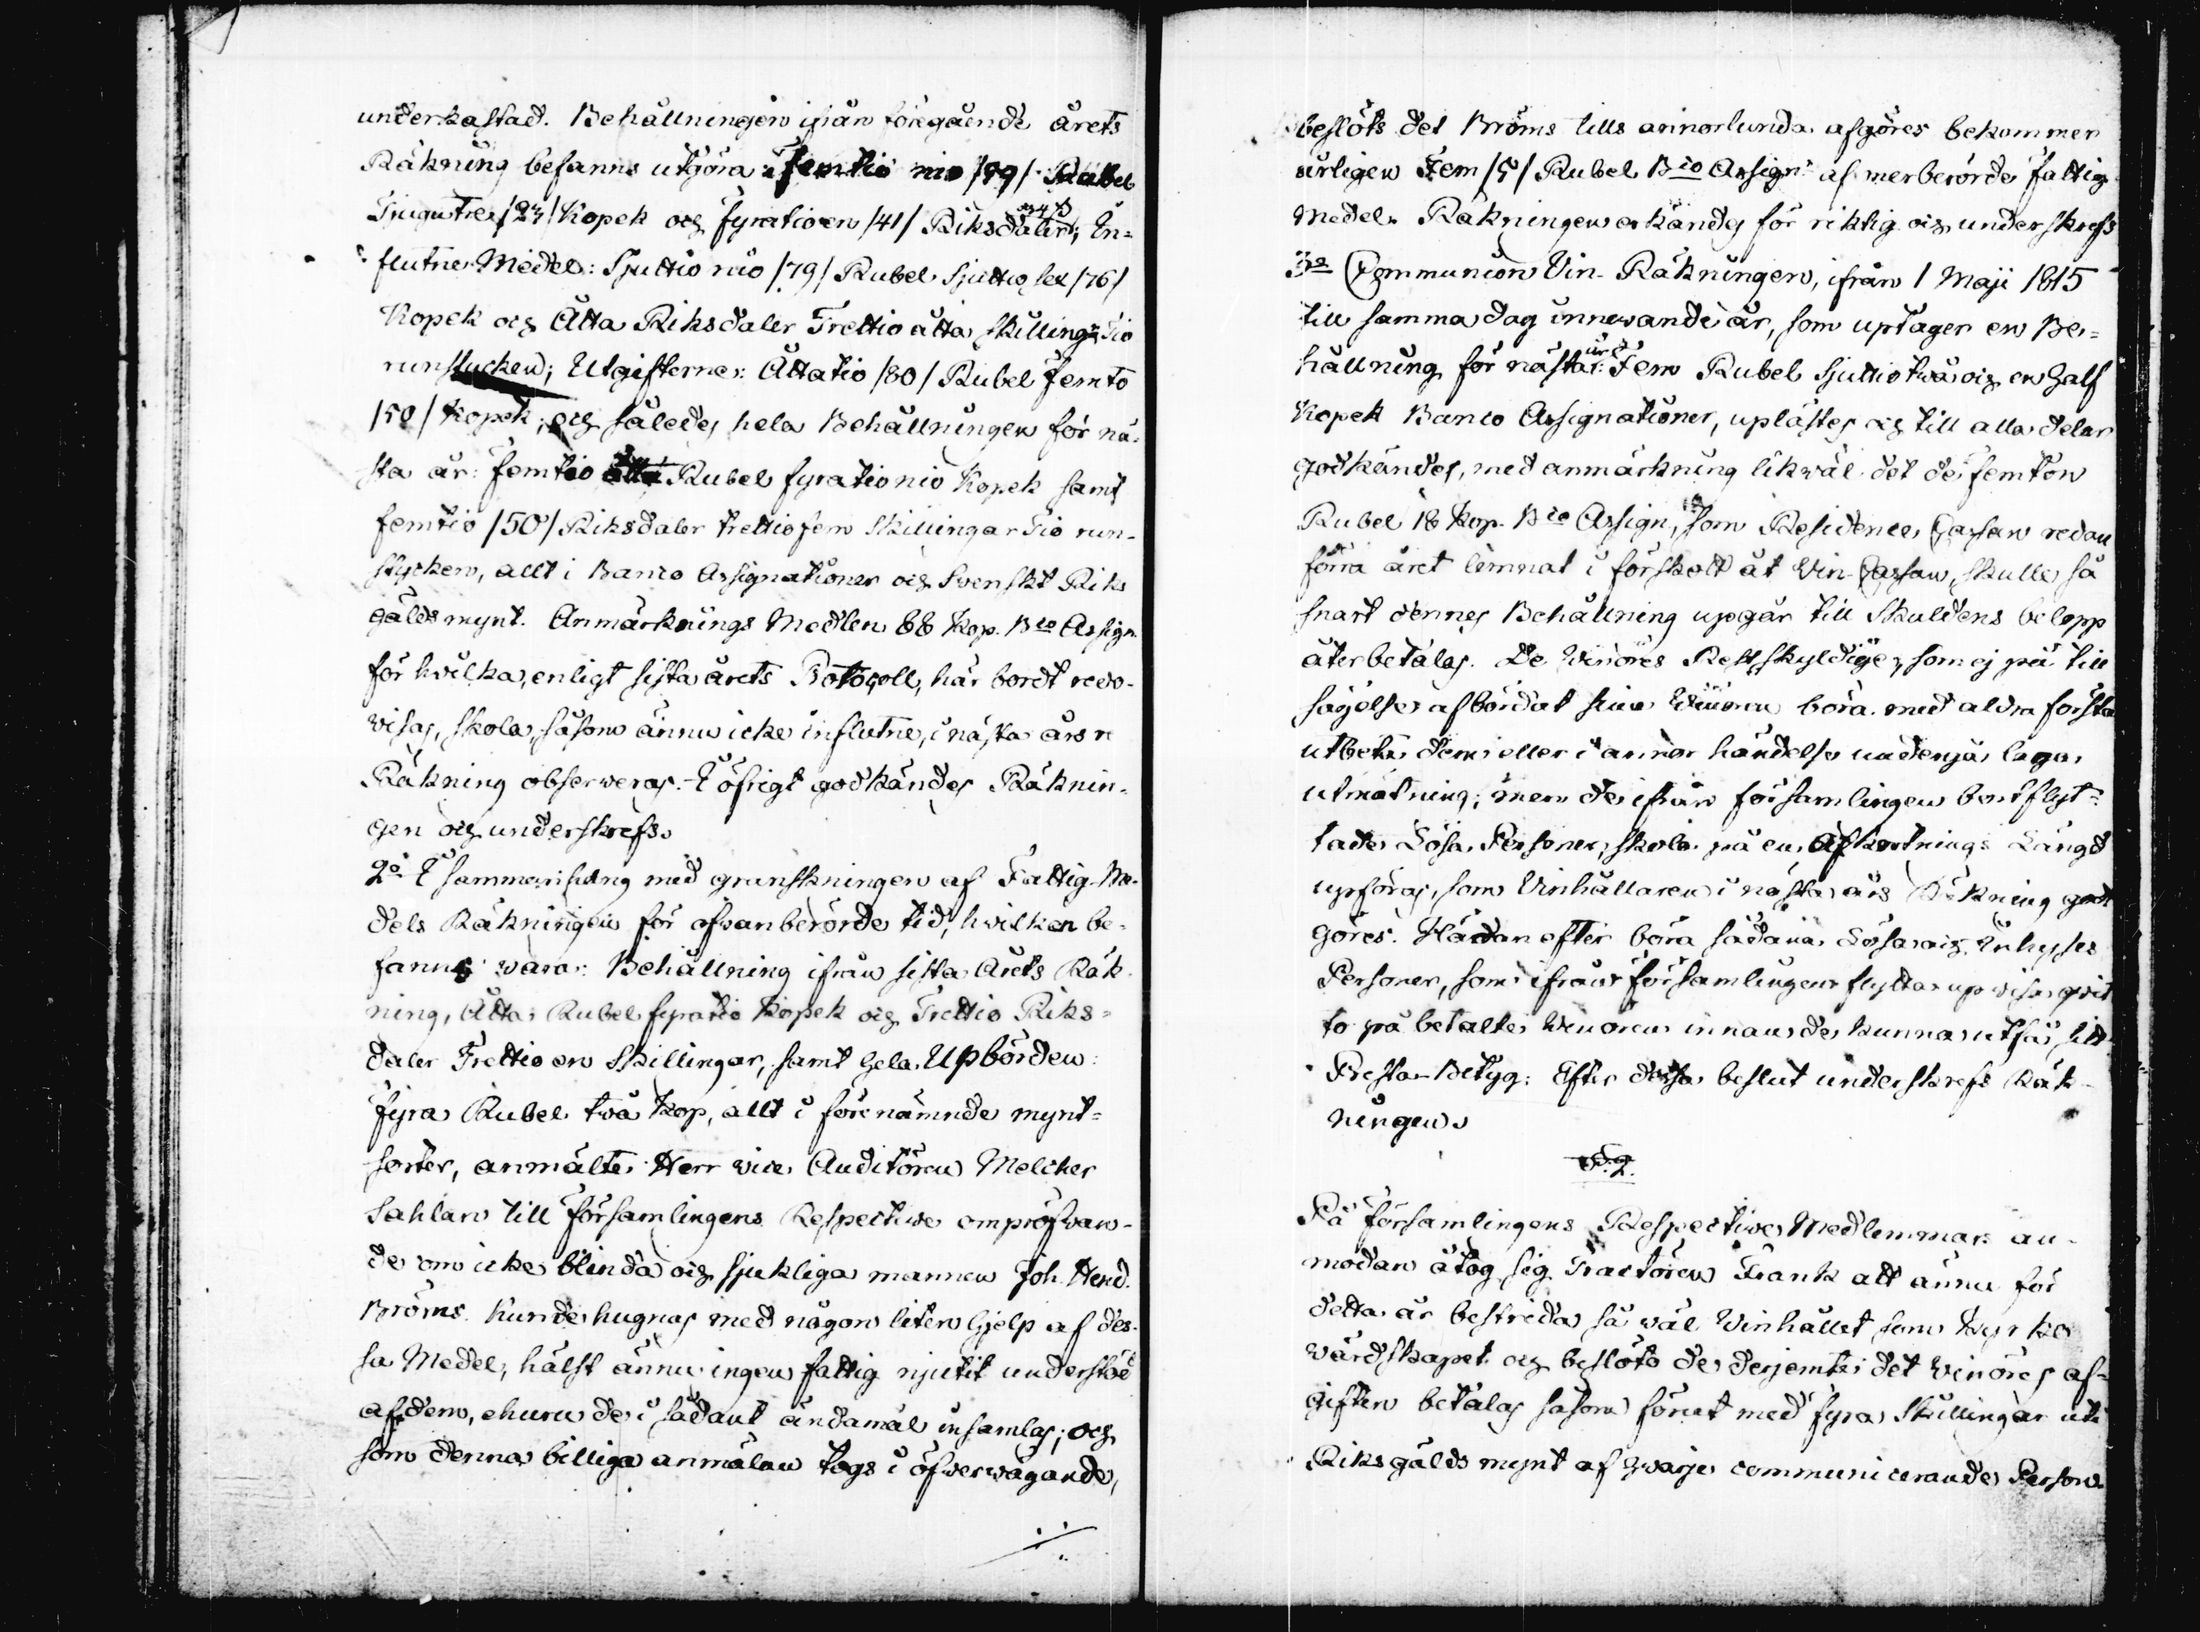 underkastad. Behållningen ifrån föregående årets
Räkning befanns utgöra: femtio nio /59/ Rubel
Tjugutre /23/ Kopek och fyratioen /41/ Riksdaler, In-
flutne Medel: Sjuttio nio /79/ Rubel Sjuttio sex /76/
Kopek och Åtta Riksdaler Trettio åtta skillingar Tio
runstycken; Utgifterne: Åttatio /80/ Rubel femtio
/50/ kopek; och således hela Behållningen för nä-
sta år: femtio åtta Rubel fyrationio Kopek samt
femtio /50/ Riksdaler trettiofem skillingar Tio run-
stycken, allt i Banco Assignationer och Svenskt Riks
gälds mynt. Anmärknings Medlen 66 Kop. Bco Assign.
för hvilka, enligt sista årets Protocoll, här bordt redo-
visas, skola, såsom ännu icke influtne, i nästa års
Räkning observeras. I öfrigt godkändes Räknin-
gen och underskrefs.
2o I sammanhang med granskningen af Fattig-Me-
dels Räkningen för ofvanberörde tid, hvilken be-
fanns vara: Behållning ifrån sista Årets Räk-
ning, Åtta Rubel fyratio Kopek och Trettio Riks-
daler Trettio en Skillingar, samt hela Upbörden:
fyra Rubel två Kop, allt i förenämnde mynt-
sorter, anmälte Herr vice Auditören Melcher
Sahlan till Församlingens Respective ompröfvan-
de om icke blinda och sjukliga mannen Joh. Hend.
Bröms kunde hugnas med någon liten hjelp af des-
sa Medel, hälst ännu ingen fattig njutit understöd
af dem, ehuru de i sådant ändamål insamlas; och
som denna billiga anmälan togs i öfvervägande,
beslöts det Bröms tills annorlunda afgöres bekommer
årligen Fem /5/ Rubel Bco Assign. af merberörde fattig
medel. Räkningen erkändes för riktig och underskrefs
3o Communion Vin-Räkningen, ifrån 1 Maji 1815
till samma dag innevarande år, som uptager en Be-
hållning för nästa år: Fem Rubel sjuttiotvå och en half
Kopek Banco Assignationer, uplästes och till alla delar
godkändes, med anmärkning likväl det de femton
Rubel 18 Kop. Bco Assign, som Residence Cassan redan
förra året lemnat i förskott åt Vin-Cassan, skulle så
snart dennes Behållning upgår till skuldens belopp
återbetalas. De Vinöres Restskyldige, som ej på till
sägelse afbördat sine Vinören böra med aldra första
utbeta dem eller i annor händelse undergå laga
utmätning; men de ifrån församlingen bortflyt-
tade Lösa Personer, skola på en Afkortnings Längd
upföras, som Vinhållaren i nästa års Räkning godt
göres. Hädan efter böra sådana Lösa och Inhyses
Personer, som ifrån församlingen flytta upvisa qvit
to på betalte Vinören innan de kunna utfå sitt
Prestа-Betyg. Efter dessa beslut underskrefs Räk-
ningen.
§.2.
På Församlingens Respective Medlemmars an-
modan åtog sig Tracteuren Frank att ännu för
detta år bestrida så väl Vinhållet som Kyrko
värdskapet och beslöto de derjemte det Vinöres af-
giften betalas såsom förut med fyra Skillingar uti
Riksgälds mynt af hvarje communicerande Person.